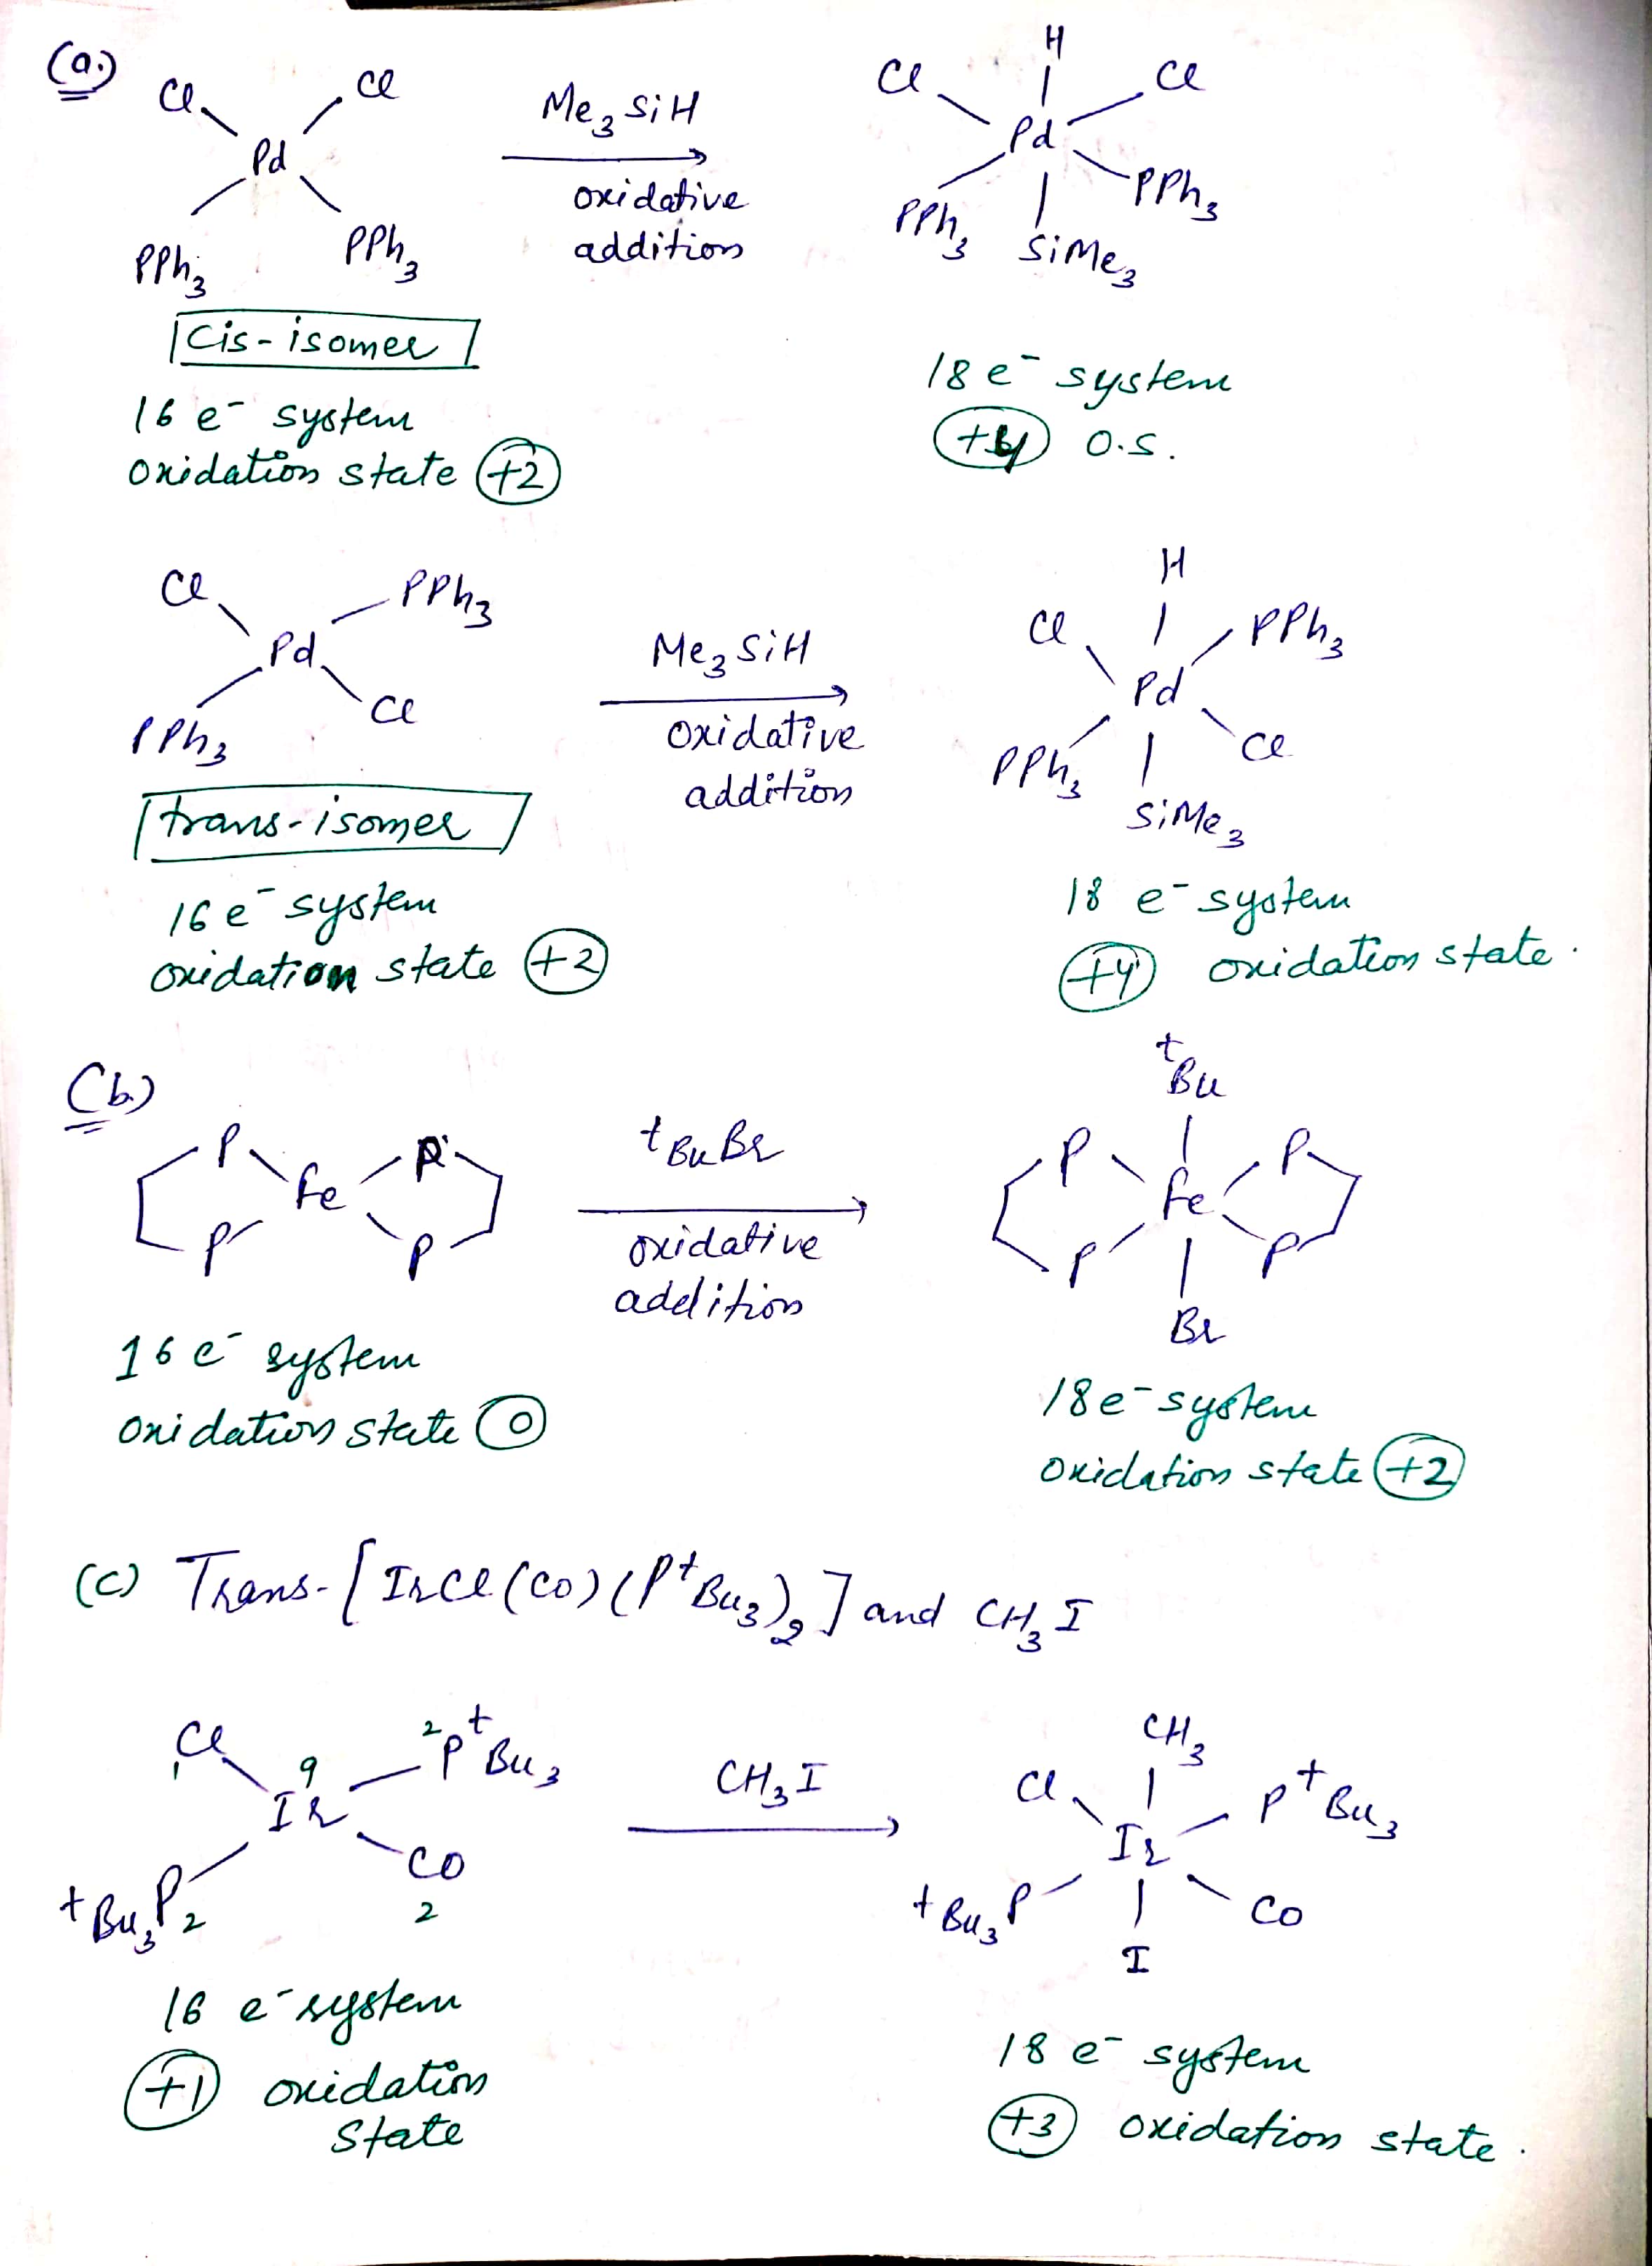 (a.)
Cl Cl
Pd
PPh3 PPh3
Me3SiH
oxidative
addition
H
Cl Cl
Pd
PPh3 PPh3
SiMe3
Cis-isomer
16 e⁻ system
oxidation state +2
18 e⁻ system
+4 O.S.
Cl PPh3
Pd
PPh3 Cl
Me3SiH
oxidative
addition
H
Cl PPh3
Pd
PPh3 Cl
SiMe3
trans-isomer
16 e⁻ system
oxidation state +2
18 e⁻ system
+4 oxidation state.
(b.)
P P
Fe
P P
tBuBr
oxidative
addition
tBu
P P
Fe
P P
Br
16 e⁻ system
oxidation state 0
18 e⁻ system
oxidation state +2
(c) Trans-[IrCl(CO)(PtBu3)2] and CH3I
Cl 1 9 2 PtBu3
Ir
tBu3P 2 CO 2
CH3I
CH3
Cl PtBu3
Ir
tBu3P CO
I
16 e⁻ system
+1 oxidation
state
18 e⁻ system
+3 oxidation state.